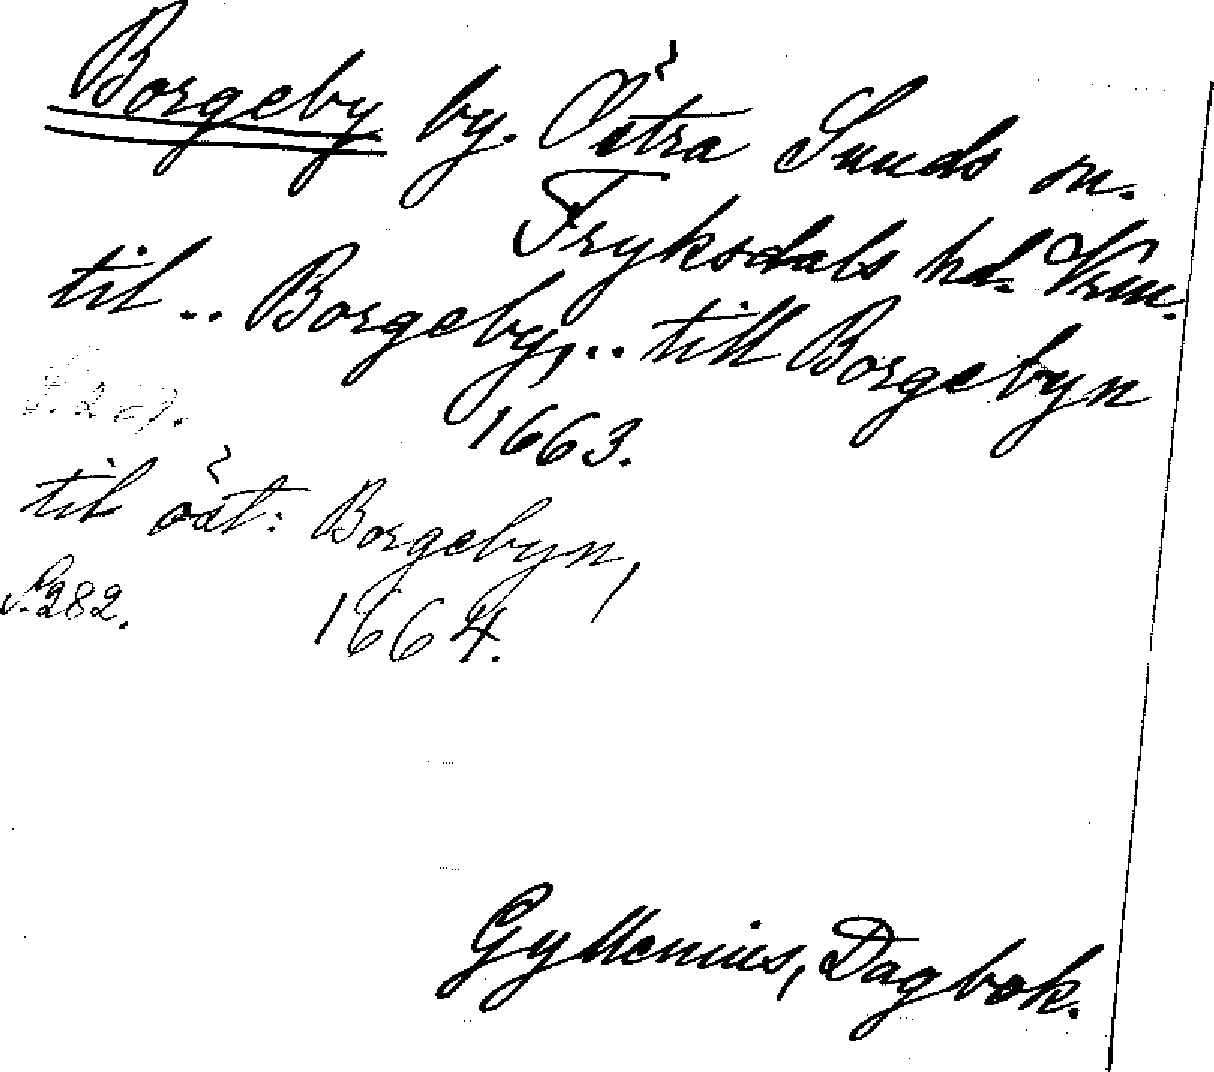 Borgeby by. Östra Sunds sn.
Fryksdals hd. Vrm.
til .. Borgeby, .. till Borgebyn
1663.
til öst: Borgebyn,
S. 282. 1664.
Gyllenius, Dagbok.